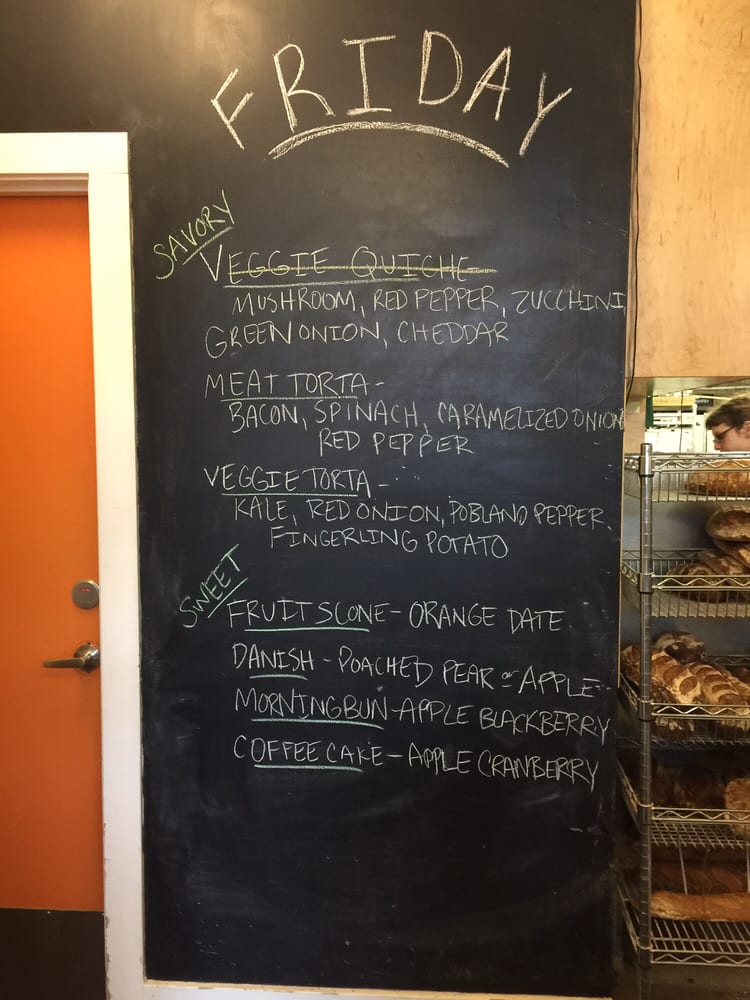 FRIDAY
SAVORY
VEGGIE QUICHE
MUSHROOM, RED PEPPER, ZUCCHINI
GREEN ONION, CHEDDAR
MEAT TORTA-
BACON, SPINACH, CARAMELIZED ONION
RED PEPPER
VEGGIE TORTA-
KALE, RED ONION, POBLANO PEPPER,
FINGERLING POTATO
SWEET
FRUIT SCONE- ORANGE DATE
DANISH - POACHED PEAR or APPLE
MORNING BUN-APPLE BLACKBERRY
COFFEE CAKE- APPLE CRANBERRY